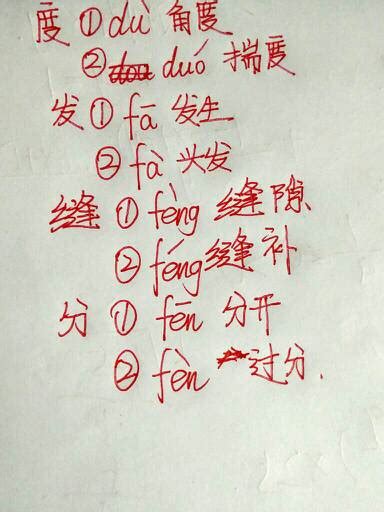 度 ① dù 角度
② duó 揣度
发 ① fā 发生
② fà 头发
缝 ① fèng 缝隙
② féng 缝补
分 ① fēn 分开
② fèn 过分.